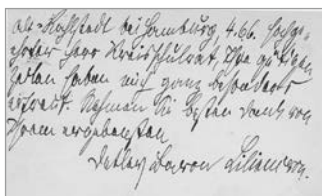 Alt-Rahlstedt bei Hamburg, 4.6.6. Hochge-
ehrter Herr Kreisschulrat, Ihre gütigen
Zeilen haben mich ganz besonders
erfreut. Nehmen Sie besten Dank von
Ihrem ergebensten
Detlev Baron Liliencron.